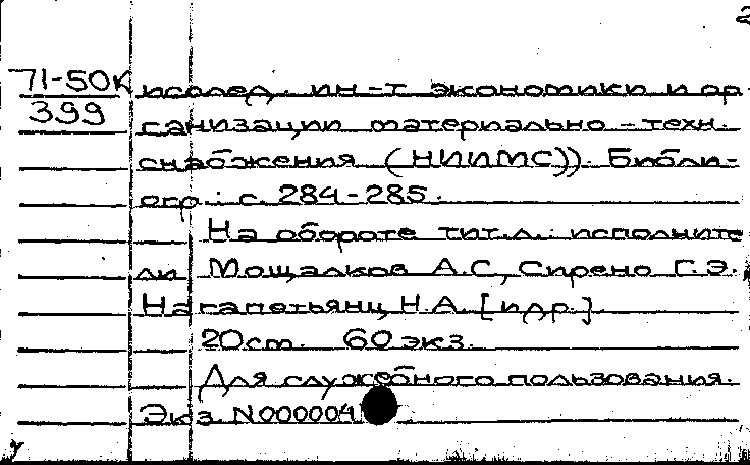 2
71-50К исслед. ин-т экономики и ор
399
ганизации материально-техн.
снабжения (НИИМС)). Библи-
огр.: с. 284-285.
На обороте тит.л.: исполните
ли Мощалков А.С, Сирено Г.Э.
Нагапетьянц Н.А. [и др.].
20см. 60 экз.
Для служебного пользования.
Экз. N000004